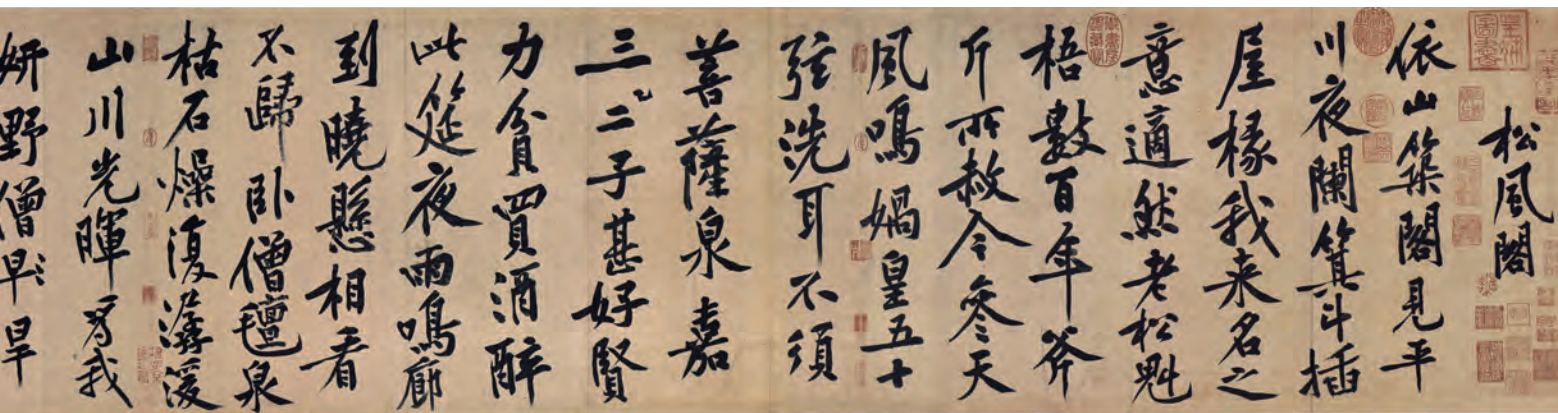 松風閣
依山築閣見平
川夜闌箕斗插
屋椽我来名之
意適然老松魁
梧數百年斧
斤所赦今參天
風鳴媧皇五十
弦洗耳不須
菩薩泉嘉
三二子甚好賢
力貧買酒醉
此筵夜雨鳴廊
到曉懸相看
不歸卧僧氈泉
枯石燥復潺湲
山川光暉為我
妍野僧早旱
皇姊圖書